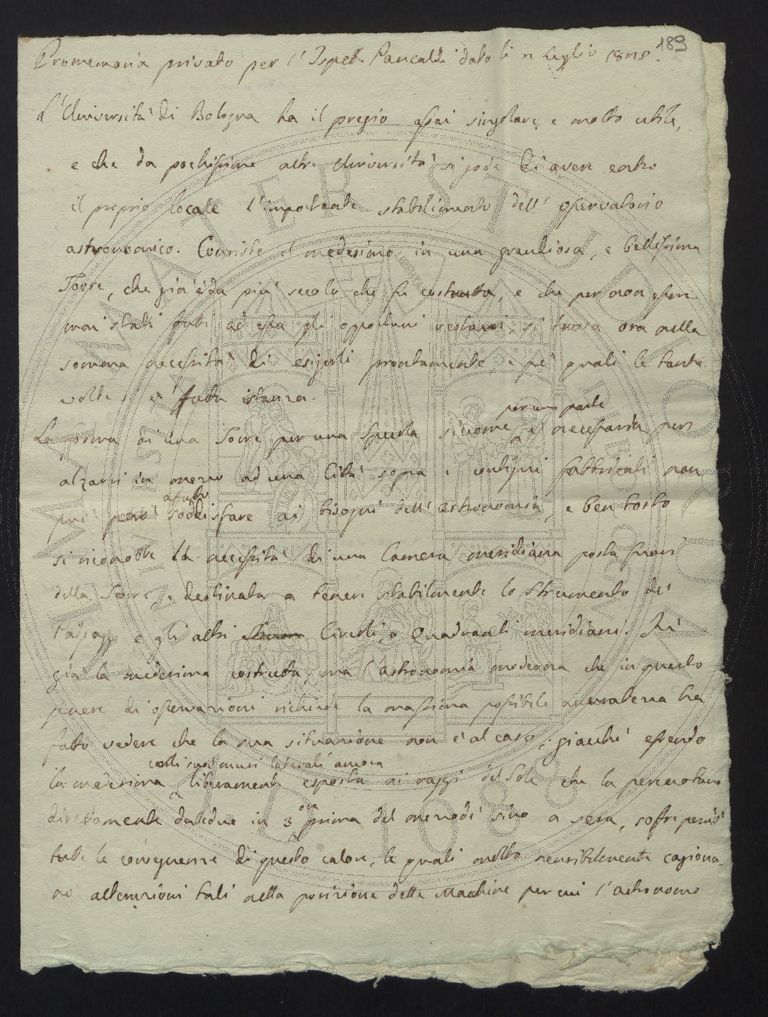 189
Promemoria privato per l'Ispett. Pancaldi dato li 11 Luglio
L'Università di Bologna ha il pregio assai singolare, e molto utile,
e che da pochissime altre Università si gode di avere entro
il proprio locale l'importante stabilimento dell'osservatorio
astronomico. Consiste il medesimo in una grandiosa, e bellissima
Torre, che già è da più secoli che fu costrutta, e che per non essere
mai stati fatti ad essa gli opportuni restauri si trova ora nella
somma necessità di esigerli prontamente e pe' quali le tante
volte si è fatta istanza.
La forma di una Torre per una Specola siccome è per una parte necessaria per
alzarsi in mezzo ad una Città sopra i contigui fabbricati non
può però sodisfare ai bisogni dell'astronomia, e ben tosto
si riconobbe la necessità di una Camera meridiana posta fuori
della Torre, e destinata a tenere stabilmente lo strumento de'
Passaggi e gli altri Circoli, o Quadranti meridiani. Fu
già la medesima costrutta, ma l'astronomia moderna che in questo
genere di osservazioni richiede la massima possibile accuratezza ha
fatto vedere che la sua situazione non è al caso, giacchè essendo
la medesima colli suoi muri laterali ancora liberamente esposta ai raggi del Sole che la percuotono
direttamente dalle due in 3 ore prima del mezzodì sino a sera, soffre perciò
tutte le conseguenze di questo calore, le quali molto sensibilmente cagiona-
no alterazioni tali nella posizione delle Macchine per cui l'astronomo